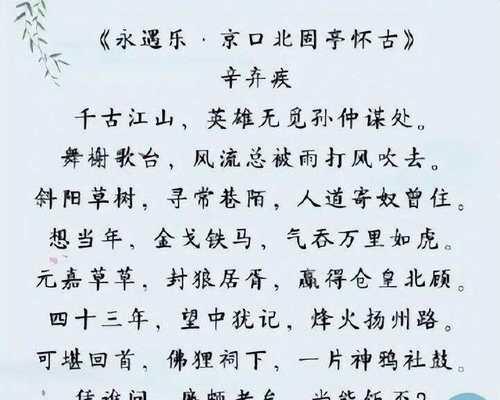 《永遇乐·京口北固亭怀古》
辛弃疾
千古江山，英雄无觅孙仲谋处。
舞榭歌台，风流总被雨打风吹去。
斜阳草树，寻常巷陌，人道寄奴曾住。
想当年，金戈铁马，气吞万里如虎。
元嘉草草，封狼居胥，赢得仓皇北顾。
四十三年，望中犹记，烽火扬州路。
可堪回首，佛狸祠下，一片神鸦社鼓。
凭谁问，廉颇老矣，尚能饭否？